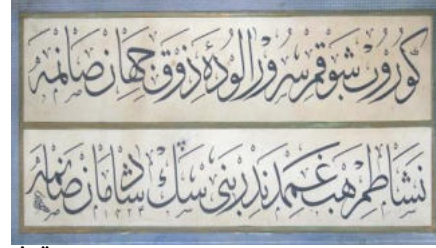 كوروب شوقم سرور آلودۀ ذوق جهان صانمه
نشاطم هب غمدندر بنى سن شادمان صانمه